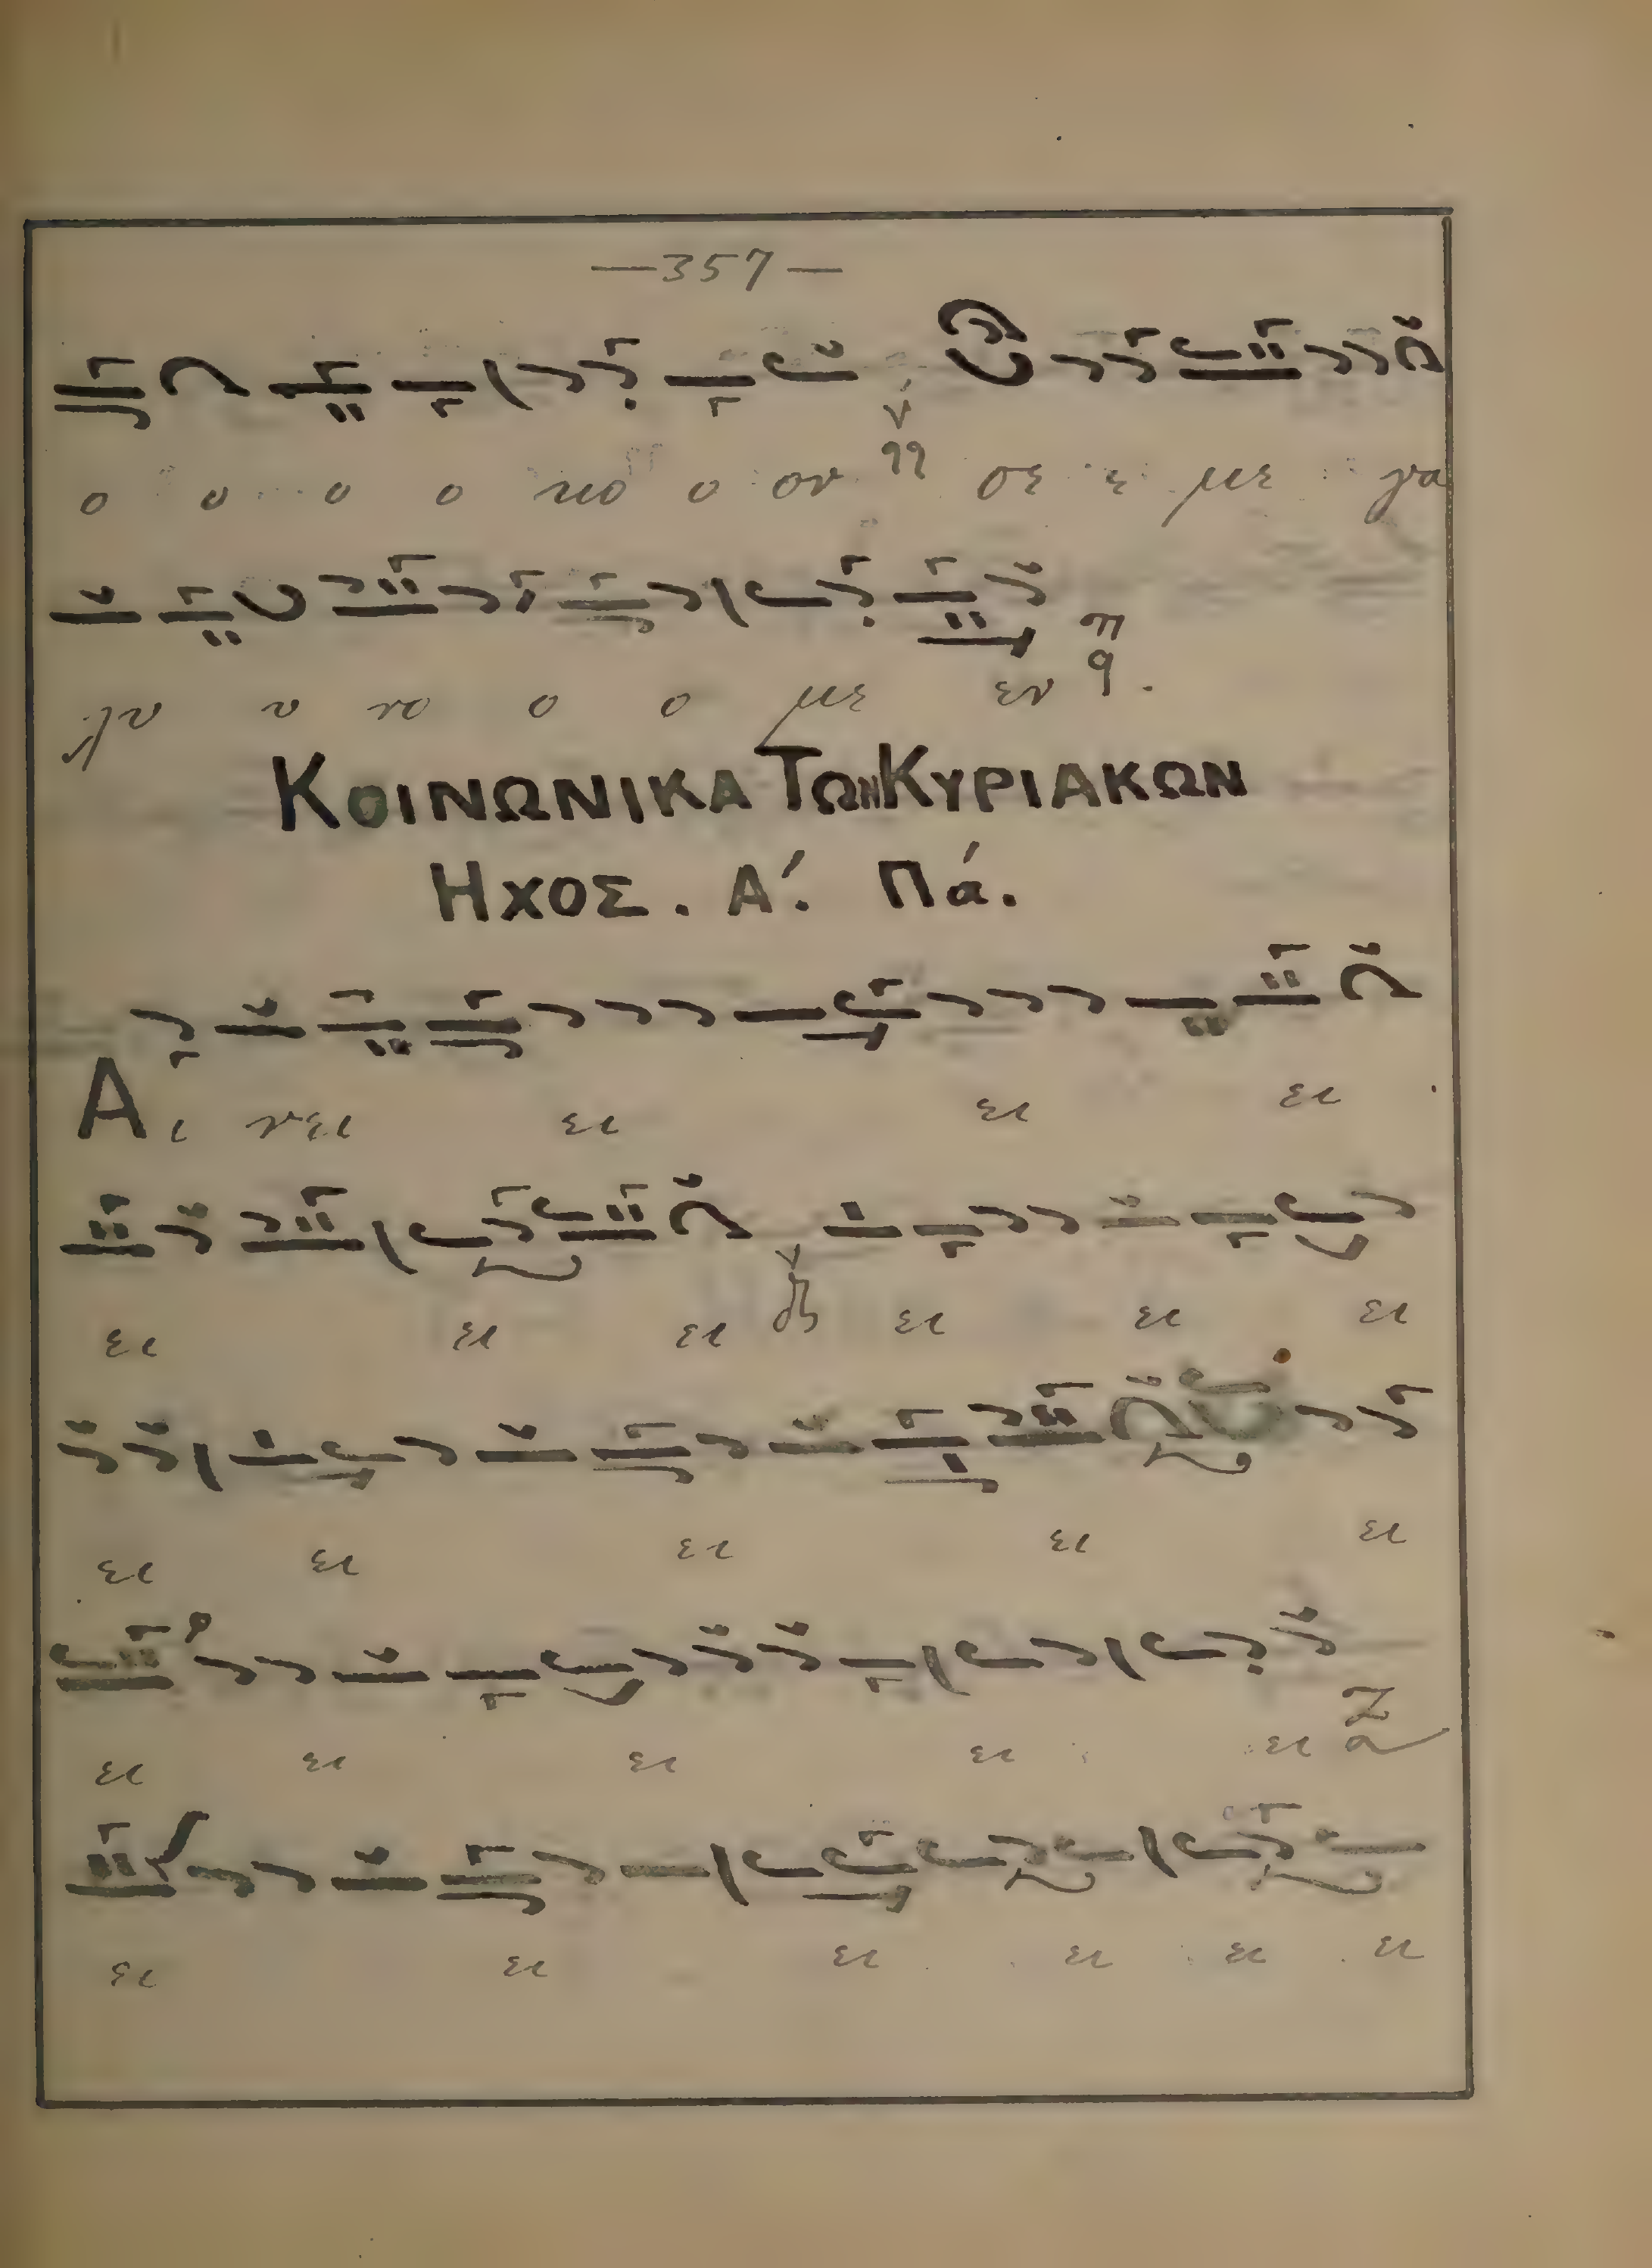 —357—
ο ο ο ο κο ο ον σε ε με γα
λυ υ νο ο ο με εν
ΚΟΙΝΩΝΙΚΑ ΤΩΝ ΚΥΡΙΑΚΩΝ
ΗΧΟΣ. Α΄. Πά.
Αι νει ει ει ει
ει ει ει ει ει ει
ει ει ει ει ει
ει ει ει ει ει
ει ει ει ει ει ει